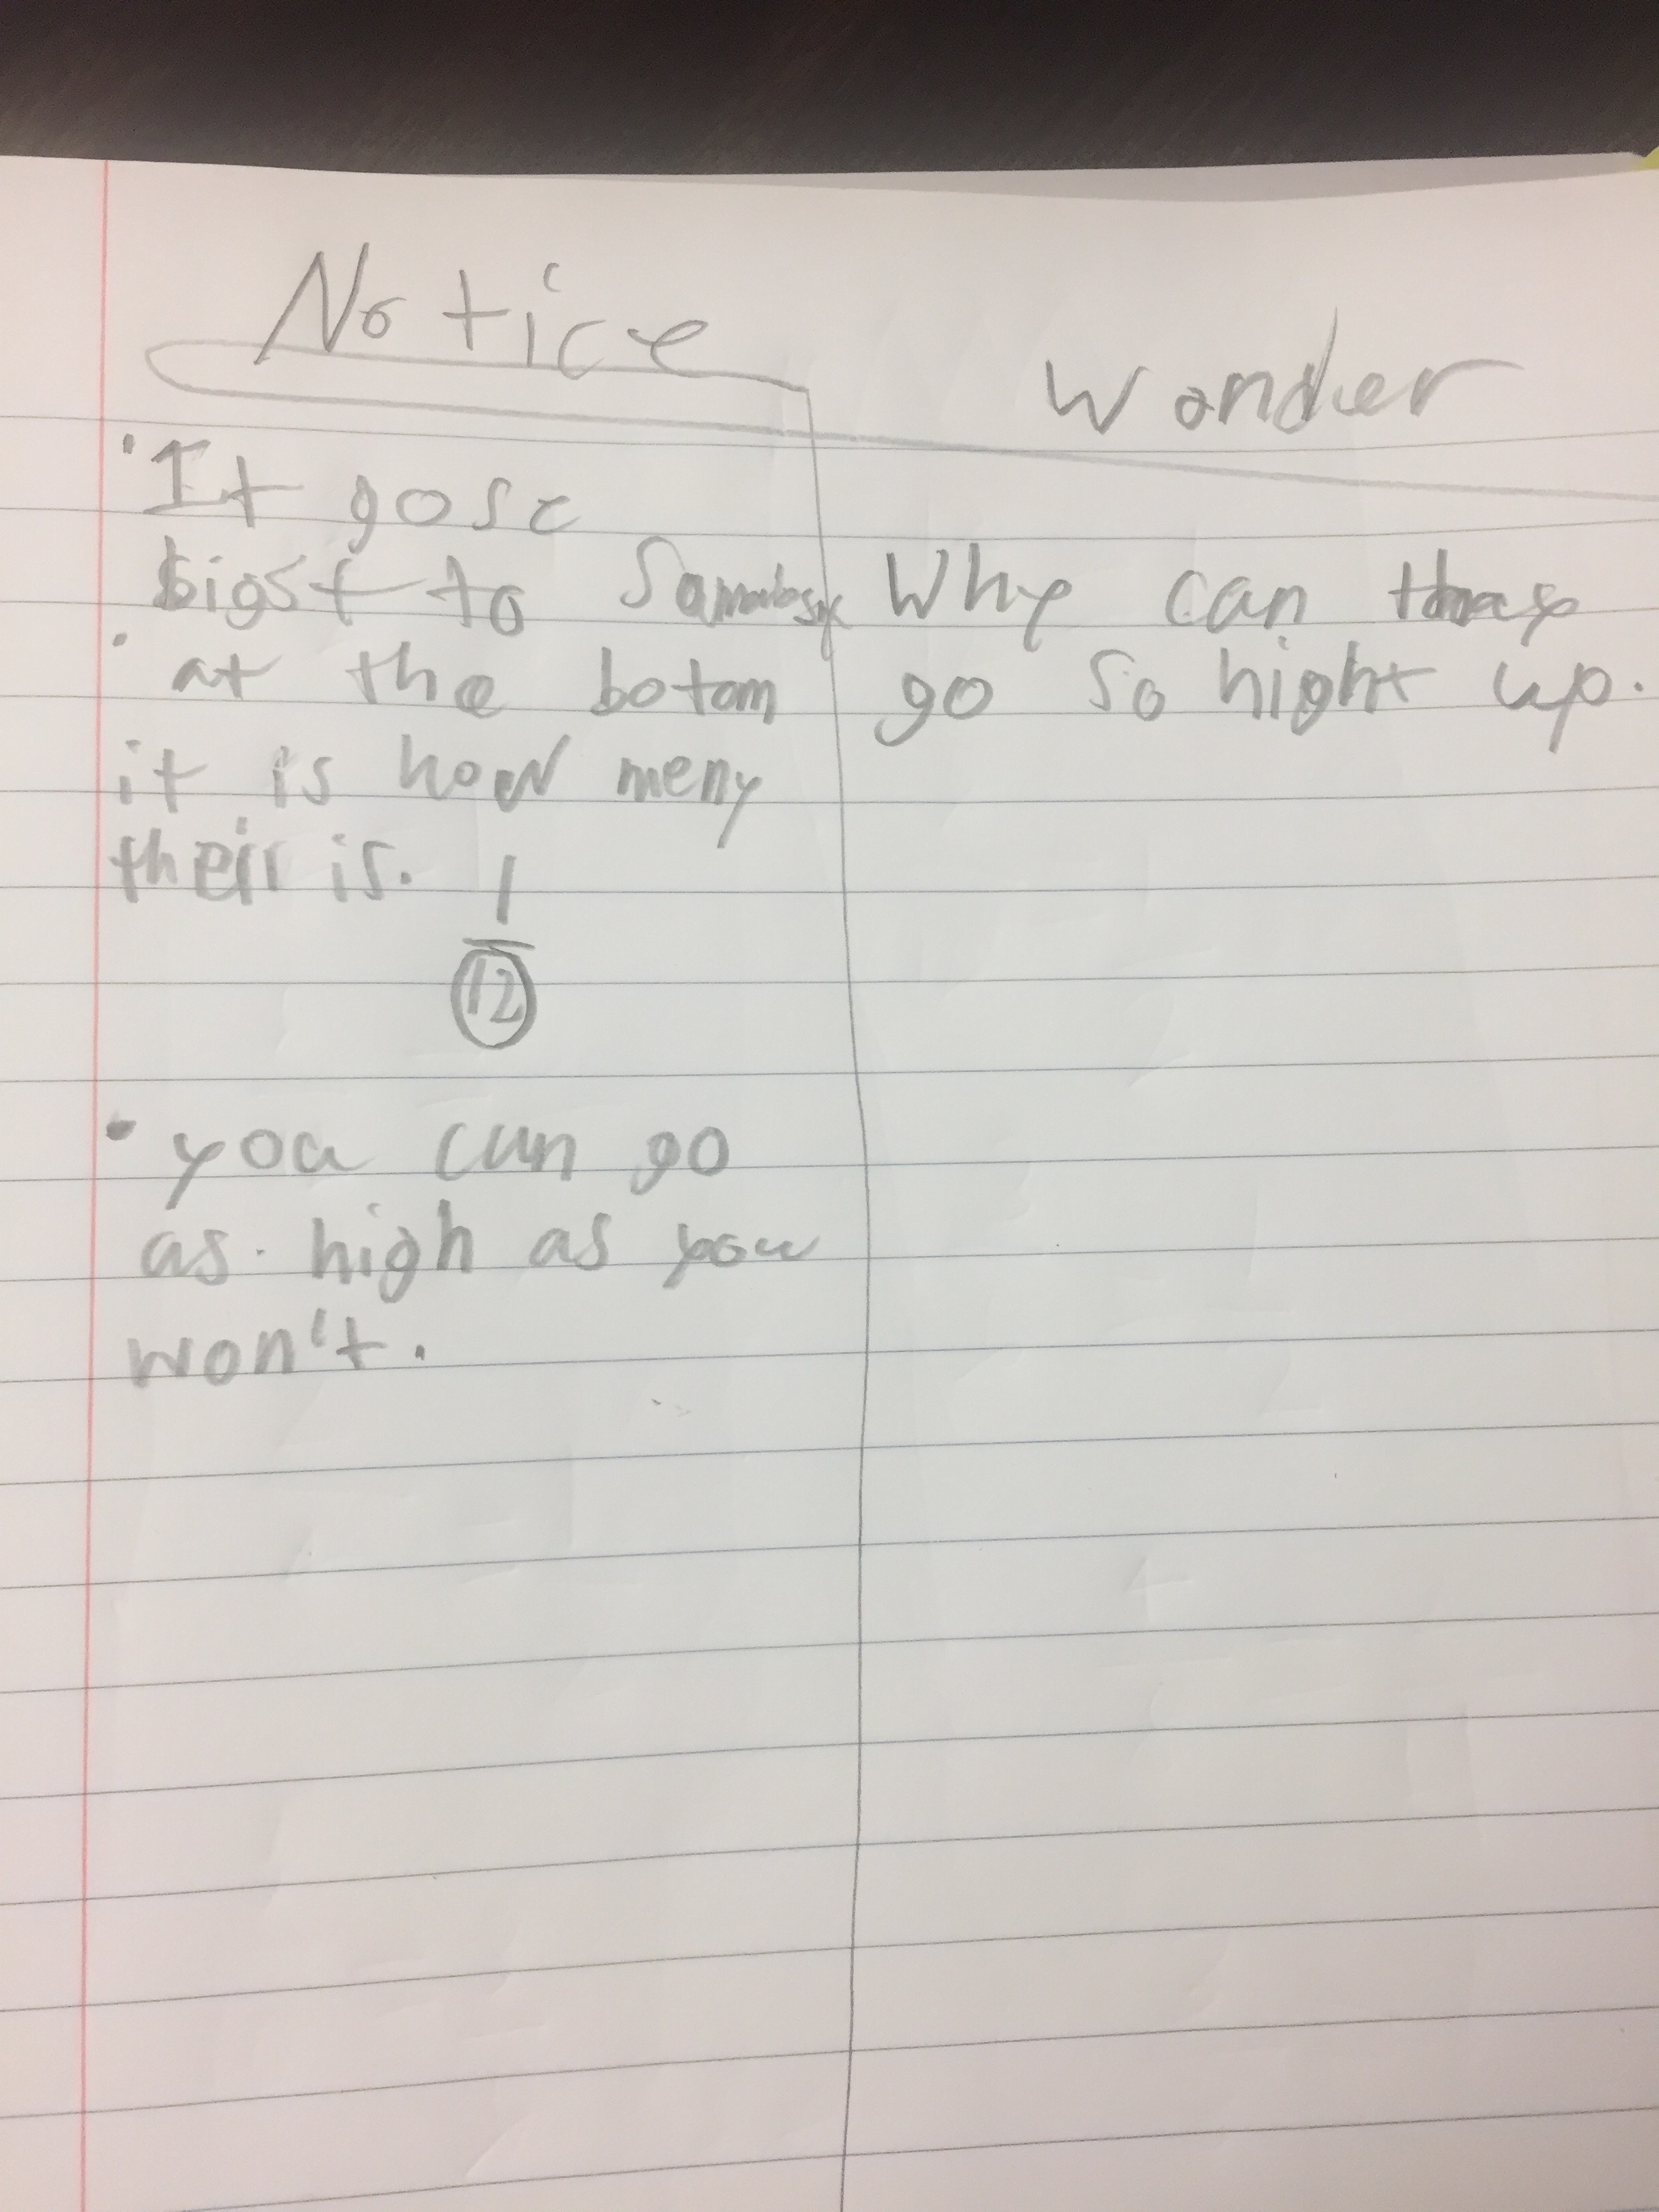 Notice
wonder
It gose
bigst to
at the botom
it is how meny
their is.
1
12
you can go
as high as you
won't.
Why can they
go so hight up.